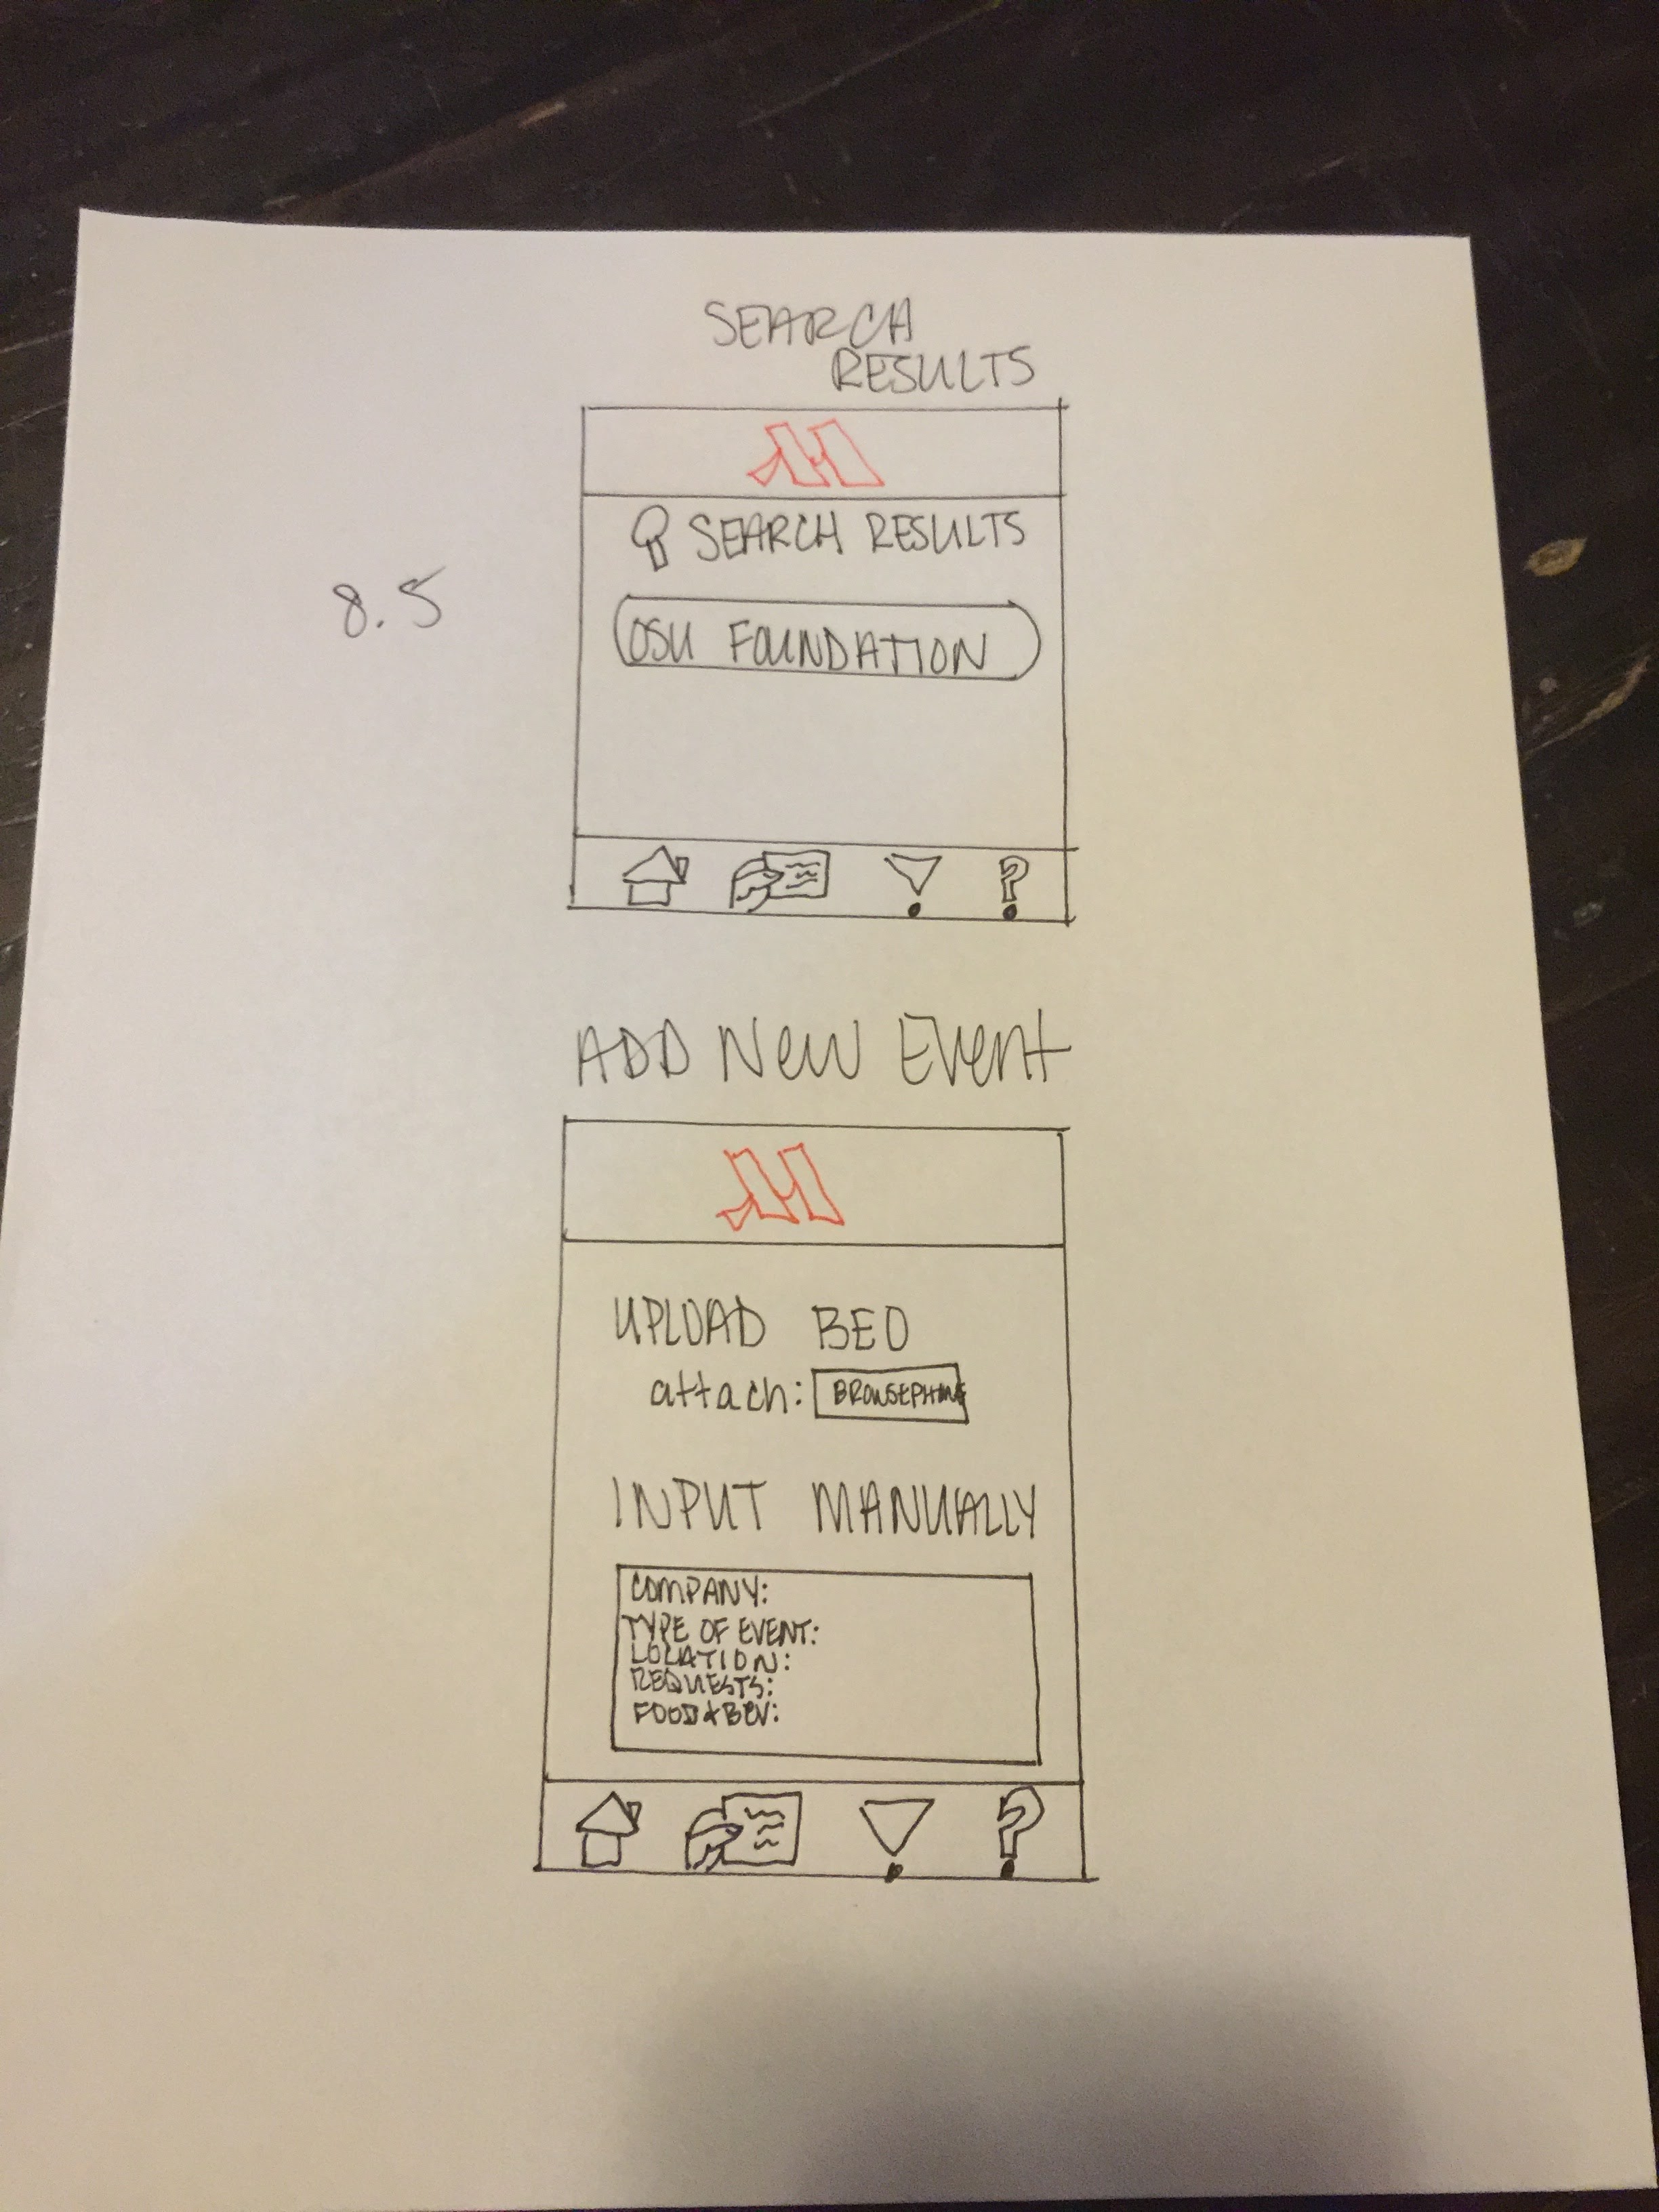 SEARCH
RESULTS
SEARCH RESULTS
8.5
OSU FOUNDATION
?
ADD New Event
UPLOAD BEO
attach: BROWSEPHONE
INPUT MANUALLY
COMPANY:
TYPE OF EVENT:
LOCATION:
REQUESTS:
FOOD & BEV:
?